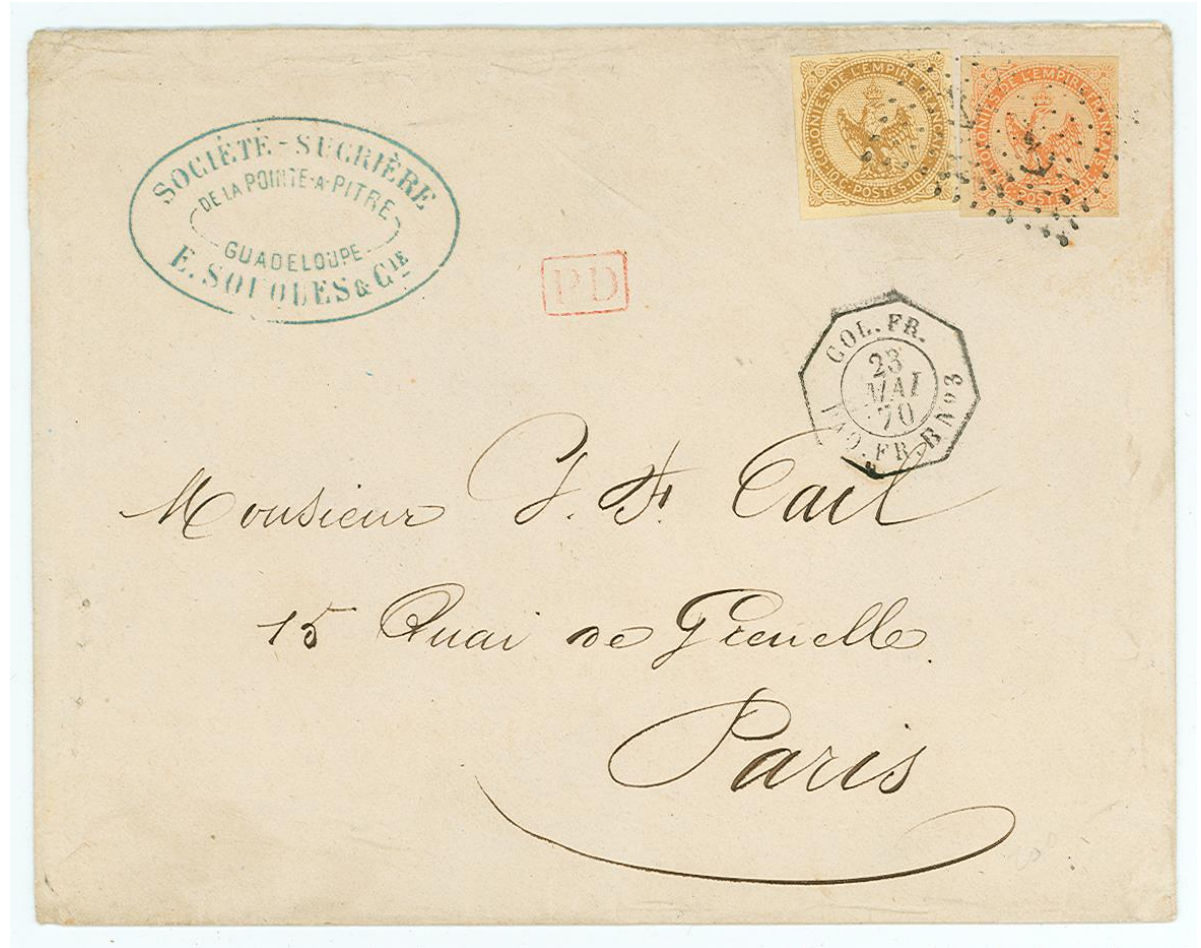 SOCIÉTÉ-SUCRIÈRE
DE LA POINTE-A-PITRE
GUADELOUPE
E. SOUQUES & CIE
COLONIES DE L'EMPIRE FRANÇAIS
POSTES
COLONIES DE L'EMPIRE FRANÇAIS
POSTES
PD
COL. FR.
23
MAI
70
PAQ. FR. B No 3
Monsieur J. F. Cail
15 Quai de Grenelle
Paris